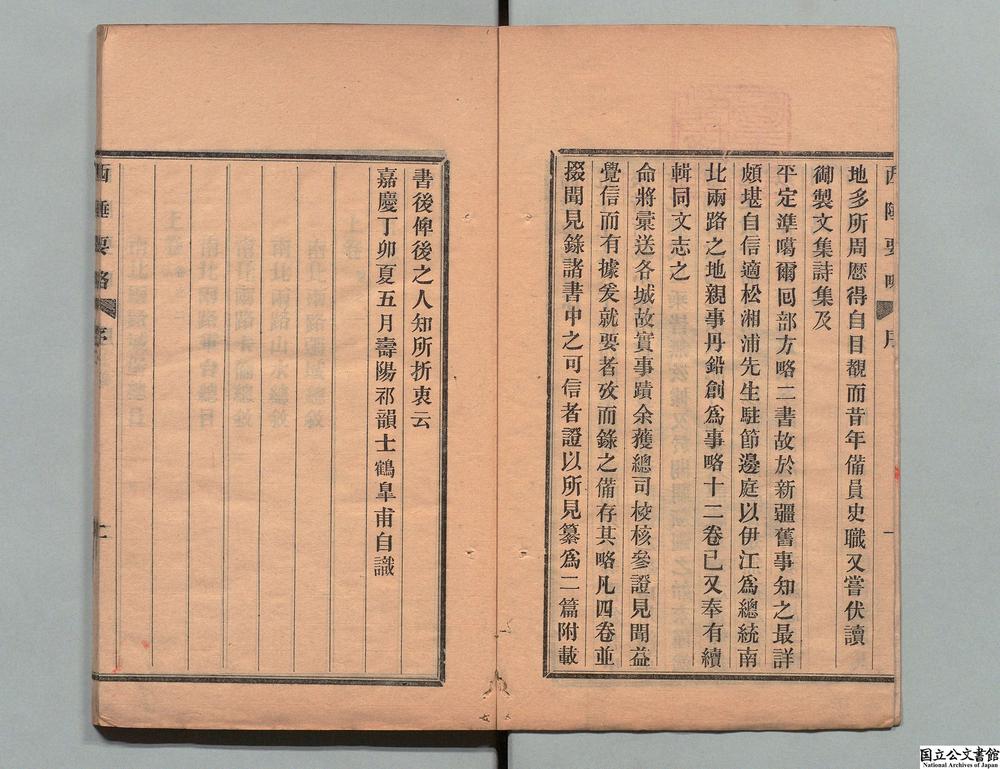 西陲要略 序 一
地多所周歷得自目覩而昔年備員史職又嘗伏讀
御製文集詩集及
平定準噶爾回部方略二書故於新疆舊事知之最詳
頗堪自信適松湘浦先生駐節邊庭以伊江爲總統南
北兩路之地親事丹鉛創爲事略十二卷已又奉有續
輯同文志之
命將彙送各城故實事蹟余獲總司校核參證見聞益
覺信而有據爰就要者攷而錄之備存其略凡四卷並
掇聞見錄諸書中之可信者證以所見纂爲二篇附載
書後俾後之人知所折衷云
嘉慶丁卯夏五月壽陽祁韻士鶴臯甫自識
西陲要略 序
国立公文書館
National Archives of Japan